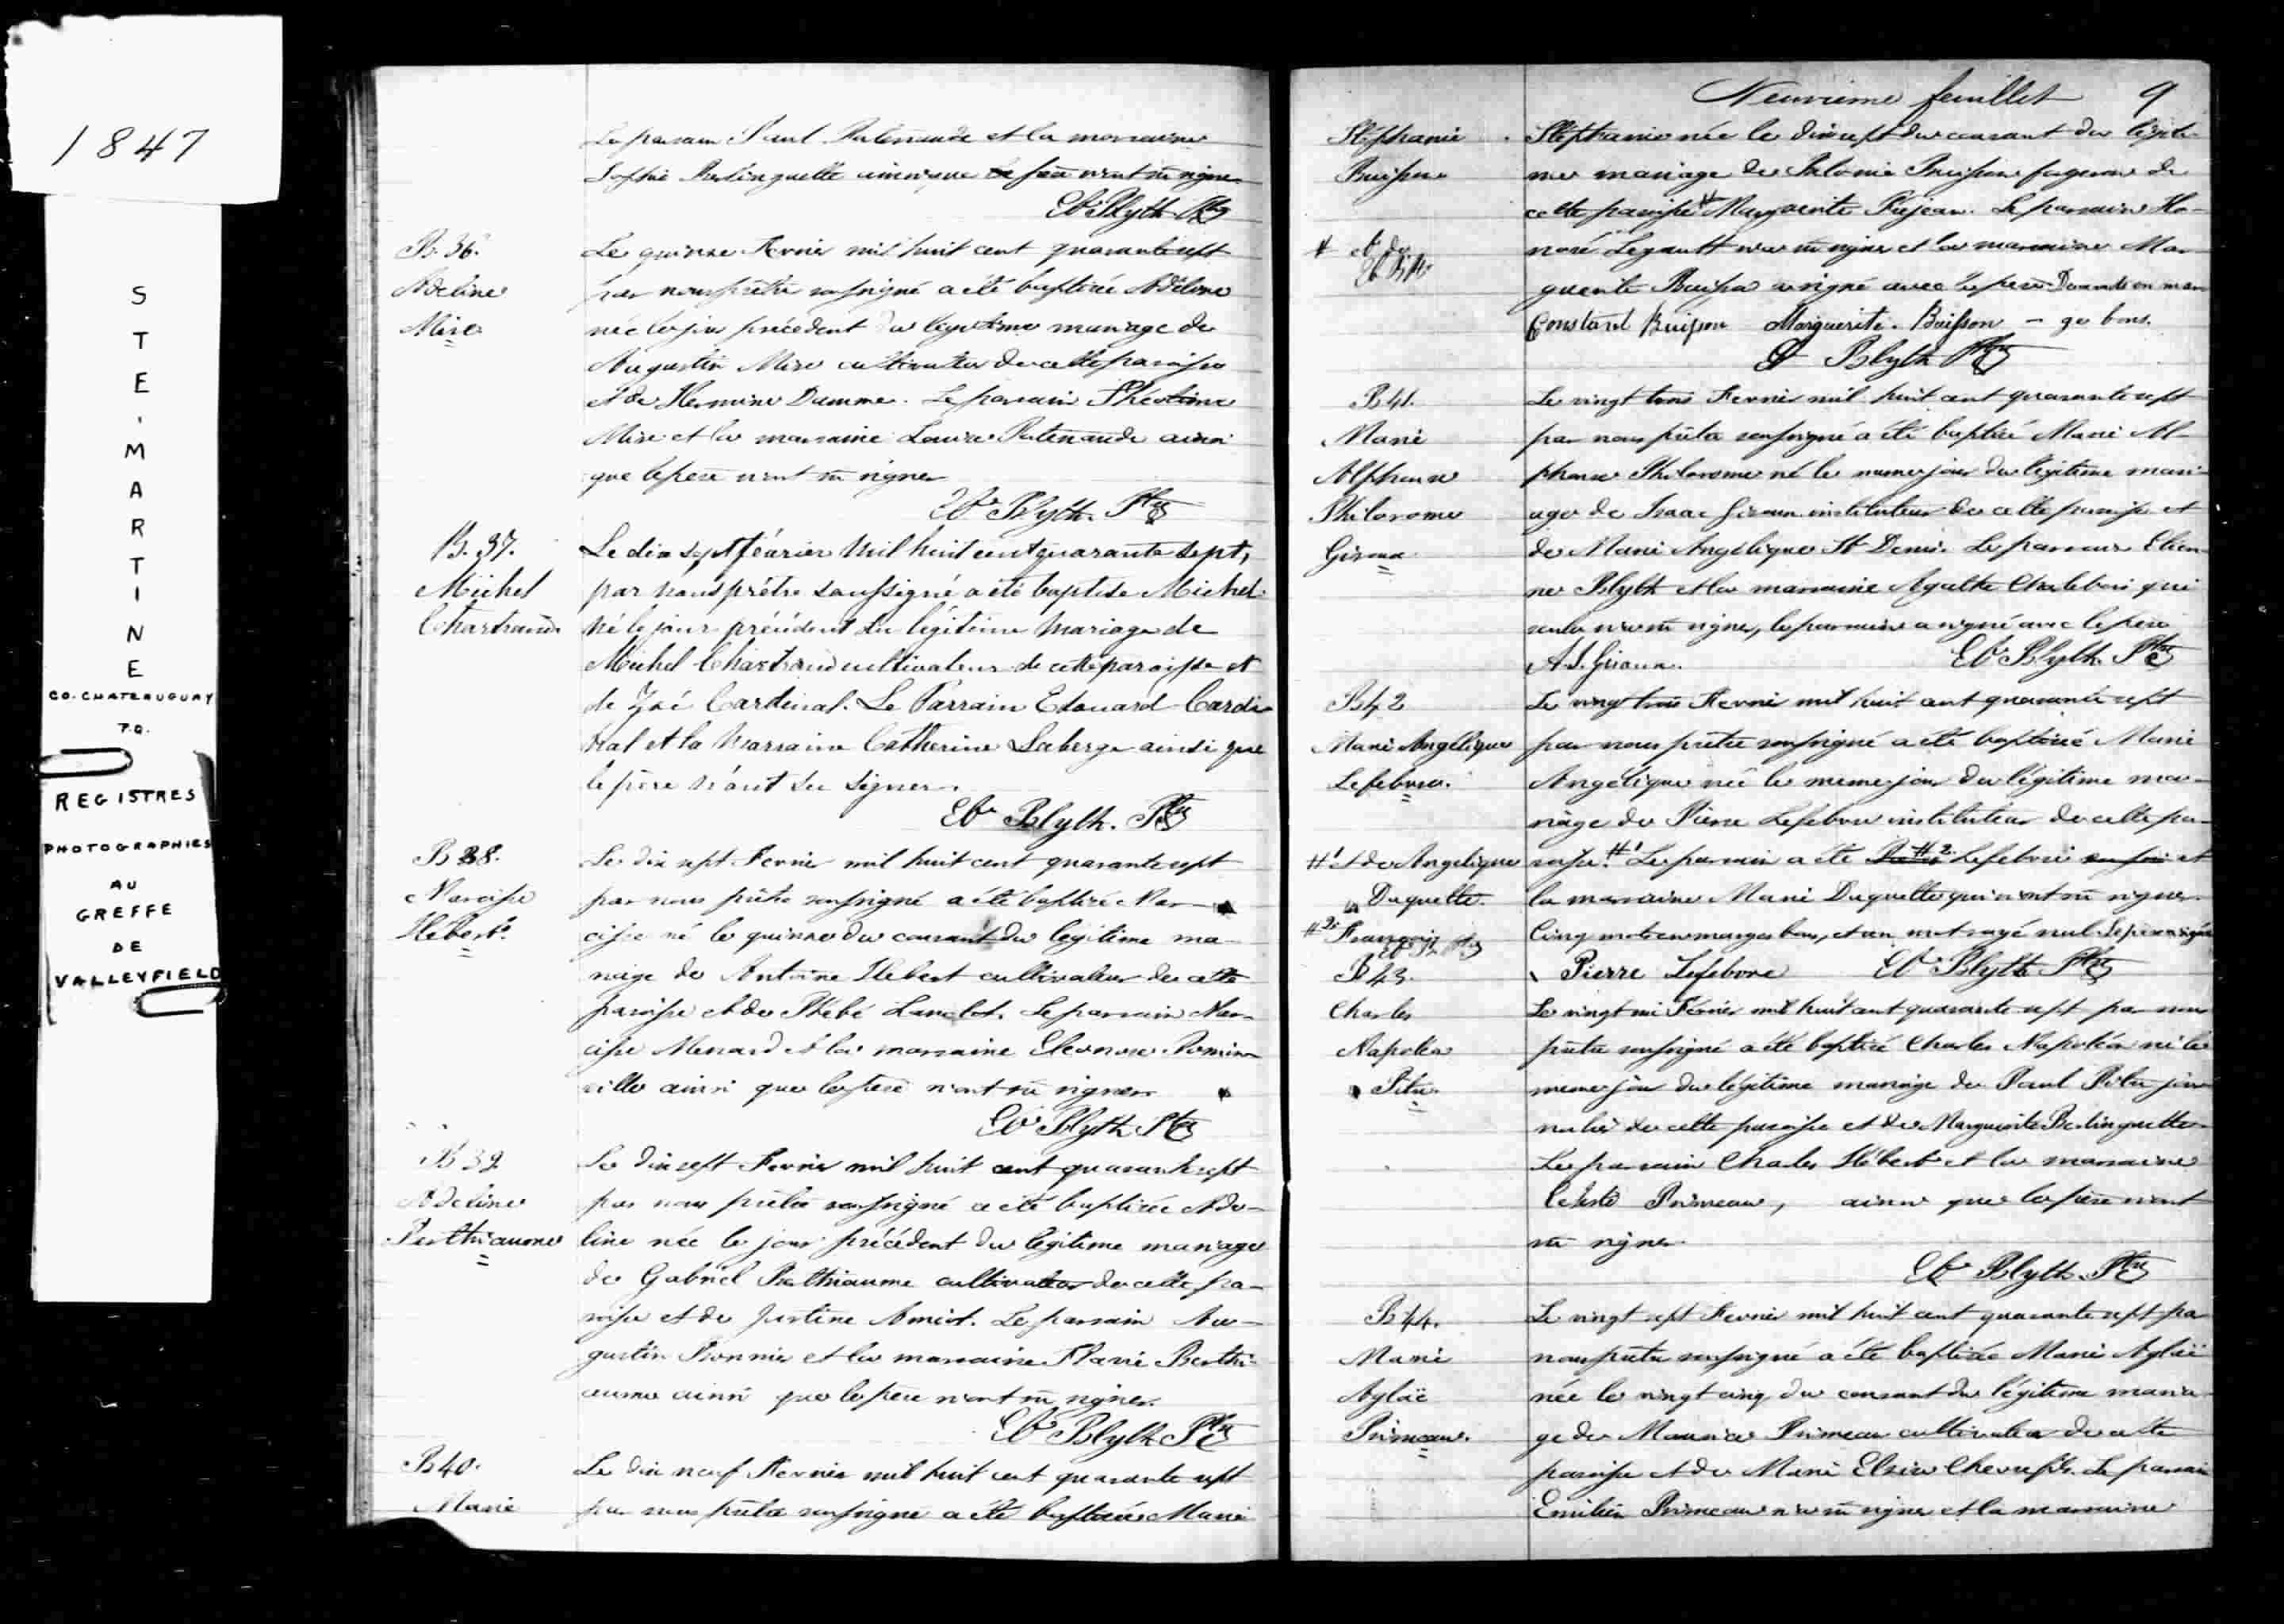 1847
STE. MARTINE
CO. CHATEAUGUAY
P.Q.
REGISTRES
PHOTOGRAPHIES
AU
GREFFE
DE
VALLEYFIELD
Le parain Paul Patenaude et la marraine
Sophie Berlinguette ainsi que le père n'ont su signer
Et. Blyth Ptre
B. 36.
Adeline
Mire
Le quinze Fevrier mil huit cent quarante sept
par nous prêtre soussigné a été baptisée Adeline
née le jour précédent du légitime mariage de
Augustin Mire cultivateur de cette paroisse
et de Hermine Damme. Le parain Théotime
Mire et la marraine Louise Patenaude ainsi
que le père n'ont su signer
Et. Blyth. Ptre
B. 37.
Michel
Chartrand
Le dix sept février mil huit cent quarante sept,
par nous prêtre soussigné a été baptisé Michel
né le jour précédent du légitime mariage de
Michel Chartrand cultivateur de cette paroisse et
de Zoé Cardinal. Le Parrain Edouard Cardi-
nal et la Marraine Catherine Laberge ainsi que
le père n'ont su signer.
Et. Blyth. Ptre
B 38.
Narcisse
Hebert
Le dix sept Fevrier mil huit cent quarante sept
par nous prêtre soussigné a été baptisé Nar-
cisse né le quinze du courant du legitime ma-
riage de Antoine Hebert cultivateur de cette
paroisse et de Phébé Lanctot. Le parrain Nar-
cisse Menard et la marraine Eleonore Pomin-
ville ainsi que le père n'ont su signer.
Et. Blyth Ptre
B 39
Adeline
Berthiaume
Le dix sept Fevrier mil huit cent quarante sept
par nous prêtre soussigné a été baptisée Ade-
line née le jour précédent du légitime mariage
de Gabriel Berthiaume cultivateur de cette pa-
roisse et de Justine Amiot. Le parrain Au-
gustin Bonnier et la marraine Flavie Berthi-
aume ainsi que le père n'ont su signer.
Et. Blyth Ptre
B 40.
Marie
Le dix neuf Fevrier mil huit cent quarante sept
par nous prêtre soussigné a été baptisée Marie
Neuvieme feuillet 9
Stéphanie
Buisson
Stéphanie née le dix sept du courant du légiti-
me mariage de Buisson forgeron de
cette paroisse # Marguerite Préjean. Le parrain Ho-
noré Legault n'a su signer et la marraine Mar-
guerite Buisson a signé avec le père. Deux mots en marge
# et de
Et. B. Ptre
Constant Buisson Marguerite. Buisson - ge bons.
Et Blyth Ptre
B 41.
Marie
Alphonse
Philorome
Giroux
Le vingt trois Fevrier mil huit cent quarante sept
par nous prêtre soussigné a été baptisé Marie Al-
phonse Philorome né le meme jour du légitime mari-
age de Isaac Giroux instituteur de cette paroisse et
de Marie Angélique St Denis. Le parrain Etien-
ne Blyth et la marraine Agathe Charlebois qui
seule n'a su signer, le parrain a signé avec le père
A. I. Giroux. Et. Blyth. Ptre
B 42
Marie Angélique
Lefebvre.
Le vingt trois Fevrier mil huit cent quarante sept
par nous prêtre soussigné a été baptisée Marie
Angélique née le meme jour du légitime ma-
riage de Pierre Lefebvre instituteur de cette pa-
roisse #1 Le parrain a été #2 Lefebvre et
la marraine Marie Duquette qui n'ont su signer.
Cinq mots en marge bons, et un mot rayé nul. Le père a signé
#1 et de Angelique
Duquette.
#2 François
Et. B. Ptre
Pierre Lefebvre Et. Blyth Ptre
B 43.
Charles
Napoléon
Pitre
Le vingt six Février mil huit cent quarante sept par nous
prêtre soussigné a été baptisé Charles Napoléon né le
meme jour du légitime mariage de Paul Pitre jour-
nalier de cette paroisse et de Marguerite Berlinguette
Le parrain Charles Hébert et la marraine
Celeste Primeau, ainsi que le père n'ont
su signer.
Et. Blyth. Ptre
B 44.
Marie
Aglaë
Primeau.
Le vingt sept Fevrier mil huit cent quarante sept par
nous prêtre soussigné a été baptisée Marie Aglaë
née le vingt cinq du courant du légitime maria-
ge de Maurice Primeau cultivateur de cette
paroisse et de Marie Chevrefils. Le parrain
Emilien Primeau n'a su signer et la marraine